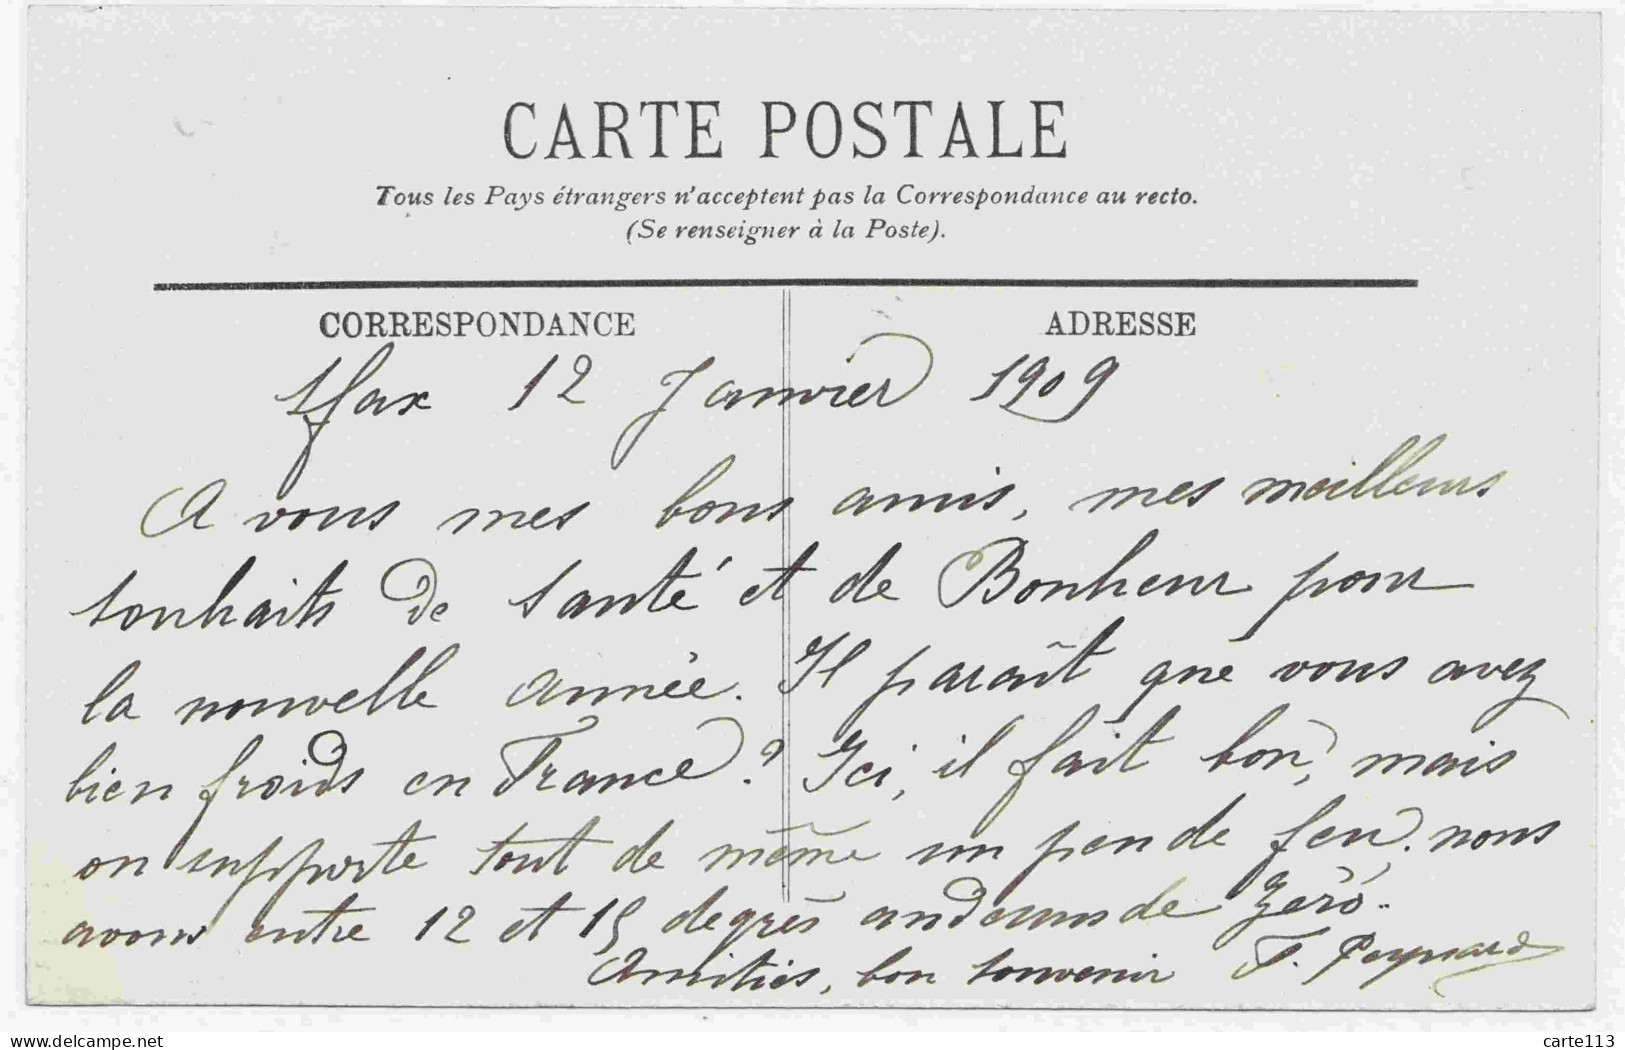 CARTE POSTALE
Tous les Pays étrangers n'acceptent pas la Correspondance au recto.
(Se renseigner à la Poste).
CORRESPONDANCE
ADRESSE
Sfax 12 Janvier 1909
A vous mes bons amis, mes meilleurs
souhaits de santé et de Bonheur pour
la nouvelle année. Il paraît que vous avez
bien froids en France? Ici, il fait bon, mais
on supporte tout de même un peu de feu. nous
avons entre 12 et 15 degrés audessus de Zéro.
Amitiés, bon souvenir F.
www.delcampe.net
carte113